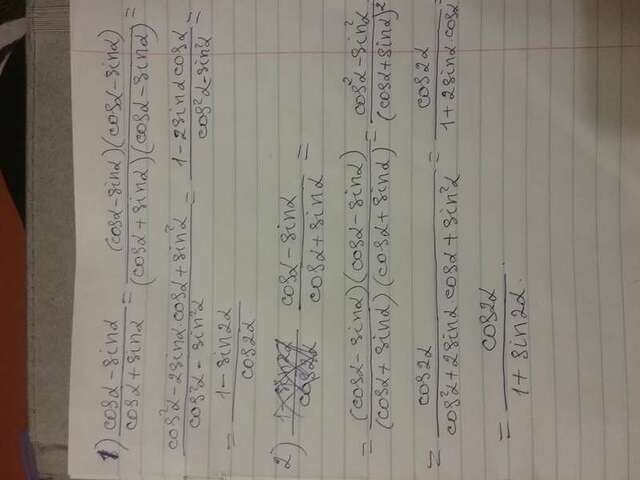 1) (cosα - sinα)/(cosα + sinα) = ((cosα - sinα)(cosα - sinα))/((cosα + sinα)(cosα - sinα)) =
(cos²α - 2sinα·cosα + sin²α)/(cos²α - sin²α) = (1 - 2sinα cosα)/(cos²α - sin²α) =
= (1 - sin2α)/(cos2α)
2) (cosα - sinα)/(cosα + sinα) =
= ((cosα - sinα)(cosα - sinα))/((cosα + sinα)(cosα + sinα)) = (cos²α - sin²α)/(cosα + sinα)²
= (cos2α)/(cos²α + 2sinα·cosα + sin²α) = (cos2α)/(1 + 2sinα·cosα) =
= (cos2α)/(1 + sin2α).